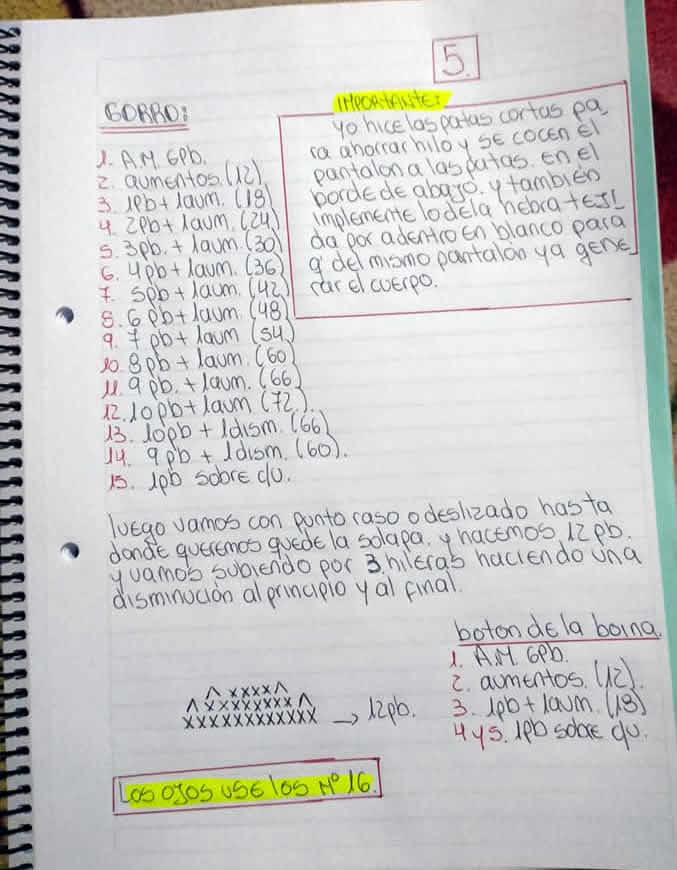 5.
GORRO:
1. A.M. 6pb.
2. aumentos. (12)
3. 1pb + 1aum. (18)
4. 2pb + 1aum. (24)
5. 3pb. + 1aum. (30)
6. 4pb + 1aum. (36)
7. 5pb + 1aum. (42)
8. 6pb + 1aum. (48)
9. 7pb + 1aum (54)
10. 8pb + 1aum. (60)
11. 9pb. + 1aum. (66)
12. 10pb + 1aum (72).
13. 10pb + 1dism. (66)
14. 9pb + 1dism. (60).
15. 1pb sobre c/u.
IMPORTANTE:
yo hice las patas cortas pa
ra ahorrar hilo y se cocen el
pantalon a las patas. en el
borde de abajo. y también
implemente lo de la hebra teji
da por adentro en blanco para
q' del mismo pantalón ya gene
rar el cuerpo.
luego vamos con punto raso o deslizado hasta
donde queremos quede la solapa. y hacemos 12pb.
y vamos subiendo por 3 hileras haciendo una
disminución al principio y al final.
Λ xxxx Λ
Λ xxxxxxxx Λ
xxxxxxxxxxxx → 12pb.
boton de la boina.
1. A.M. 6pb.
2. aumentos. (12).
3. 1pb + 1aum. (18)
4 y 5. 1pb sobre c/u.
Los ojos use los N° 16.